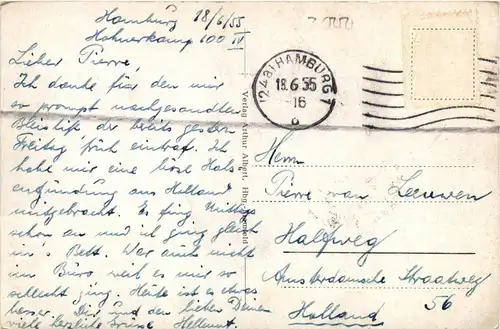 Hamburg 18/6/55
Hohnerkamp 100 IV
Lieber Pierre
Ich danke für den mir
so prompt nachgesandten
Bleistift der bereits gestern
Freitag früh eintraf. Ich
habe mir eine böse Hals
entzündung aus Holland
mitgebracht. Es fing Mittags
schon an und ich ging gleich
in's Bett. War auch nicht
im Büro weil es mir so
schlecht ging. Heute ist es etwas
besser. Dir und den lieben Deinen
viele herzliche Grüsse Hellmut.
Verlag Arthur Albert, Hbg.
(24a) HAMBURG 1
18.6.55
-16
Herrn
Pierre van Leeuwen
Halfweg
Amsterdamsche Straatweg
56
Holland